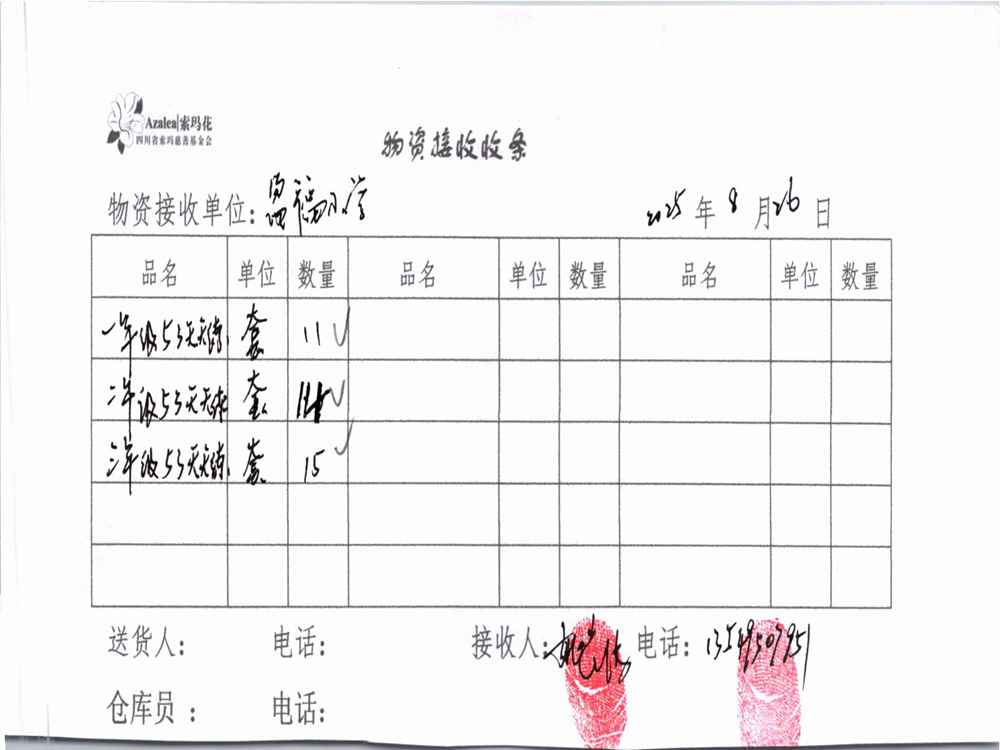 Azalea|索玛花
四川省索玛慈善基金会
物资接收收条
物资接收单位: 福小学 2025 年 8 月 26 日
品名 单位 数量 品名 单位 数量 品名 单位 数量
一年级53天天 套 11
二年级53天天 套
三年级53天天 套 15
送货人: 电话: 接收人: 电话: 13549507951
仓库员 : 电话: